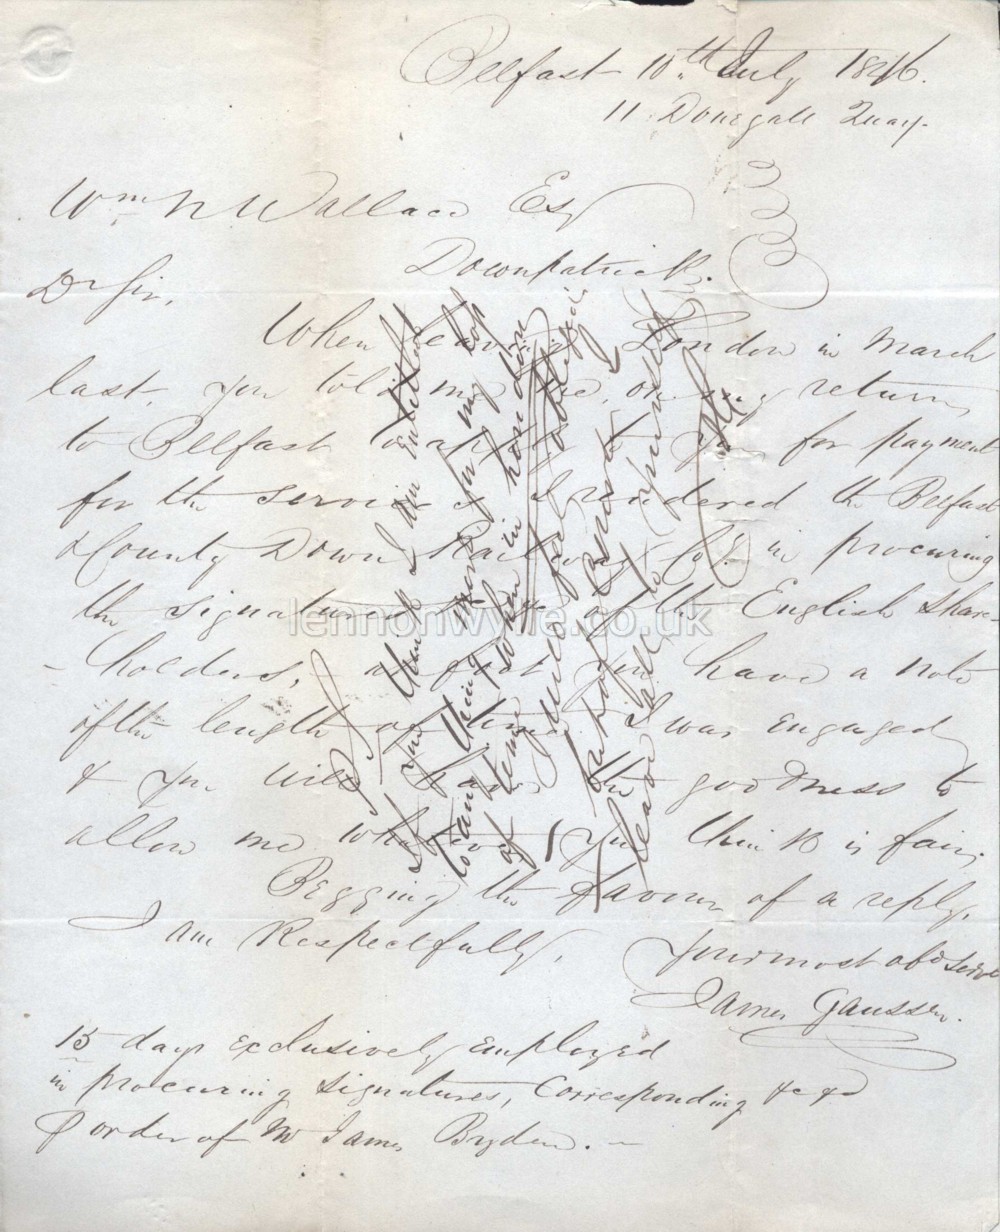 Belfast 10th July 1846.
11 Donegall Quay.
Wm N Wallace Esq
Downpatrick.
Dr Sir,
When leaving London in March
last, you told me on my return
to Belfast to apply to you for payment
for the services I rendered the Belfast
& County Down Railway Co. in procuring
the signatures of the English Share-
holders, you have a note
of the length of time I was engaged
& you will have the goodness to
allow me whatever you think is fair.
Begging the favour of a reply,
I am Respectfully,
Your most obd Servt
James Gaussen.
15 days exclusively employed
in procuring signatures, Corresponding &c &c
P order of Mr James Bryden.
If you think I am entitled
to any thing more for my loss
of time when in London
I leave it all to yourself
lennonwylie.co.uk